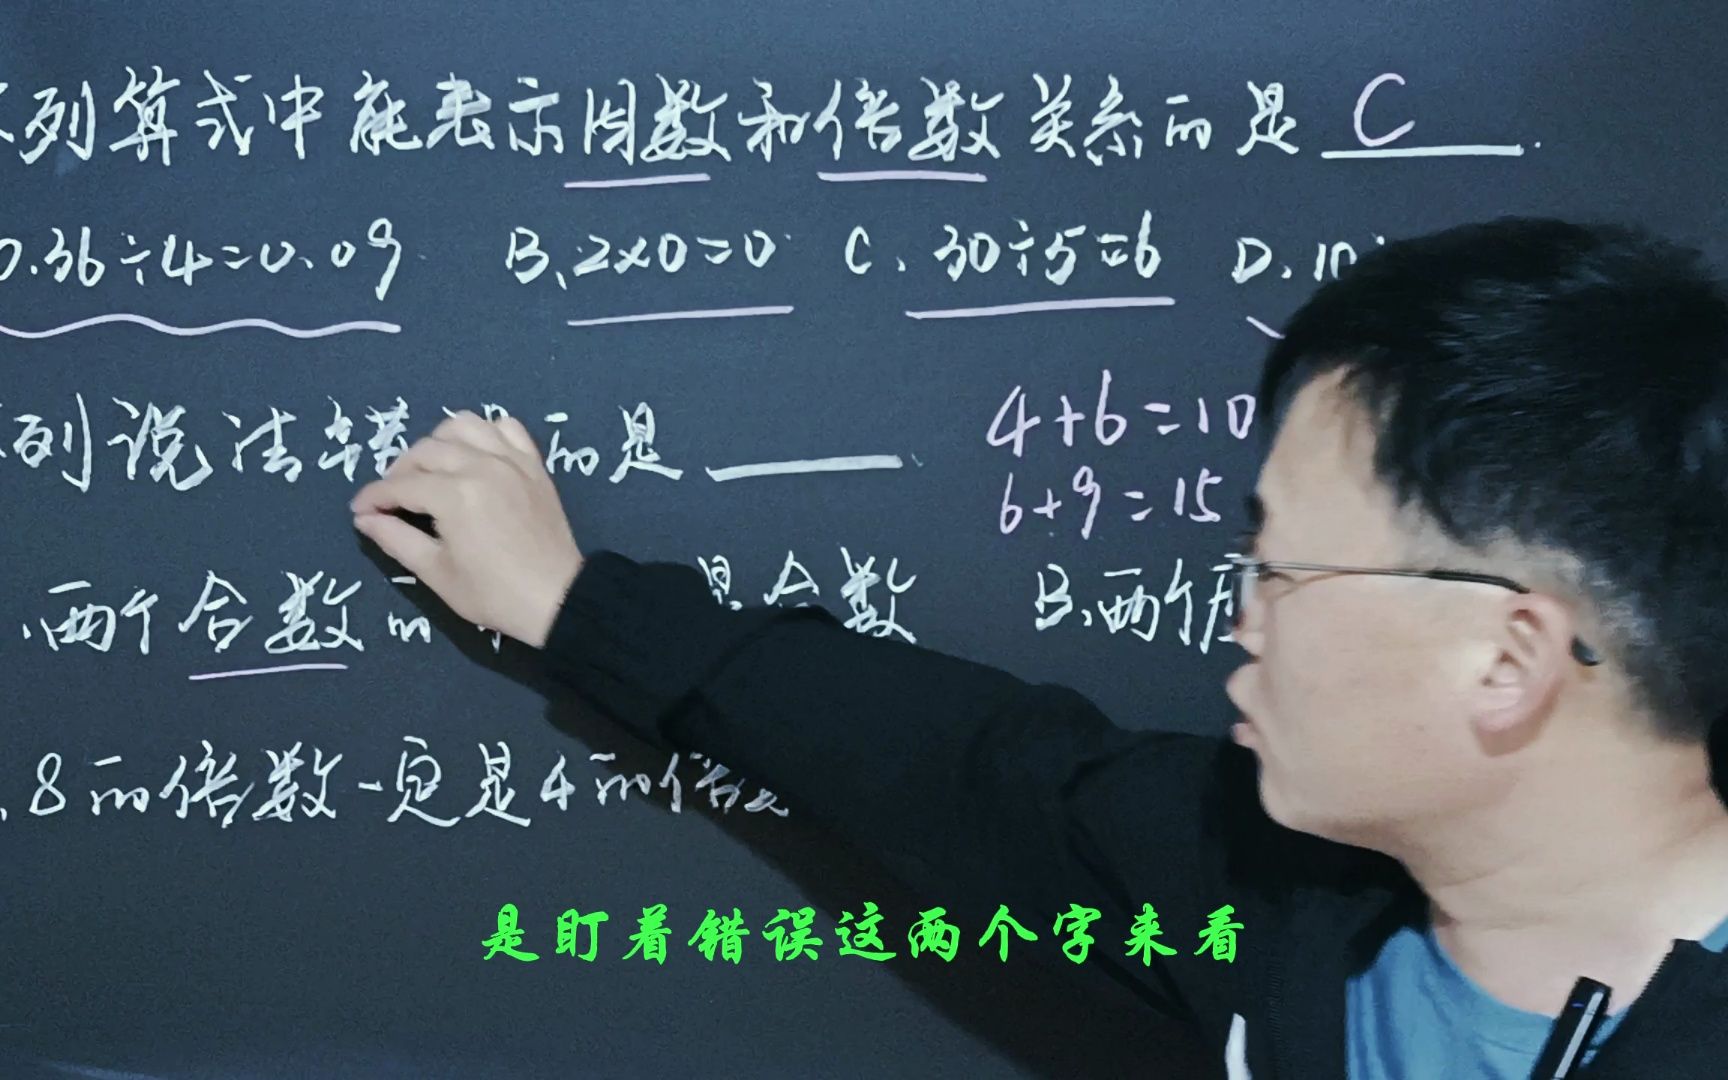 列算式中能表示因数和倍数关系的是 C .
0.36÷4=0.09 B、2×0=0 C、30÷5=6 D、10
列说法错 的是 .
4+6=10
6+9=15
、两个合数的 是合数 B、两个
、8的倍数一定是4的倍数
是盯着错误这两个字来看